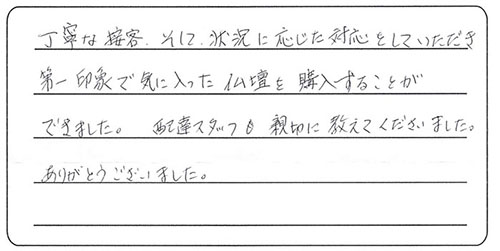 丁寧な接客、そして、状況に応じた対応をしていただき
第一印象で気に入った仏壇を購入することが
できました。 配達スタッフも親切に教えてくださいました。
ありがとうございました。